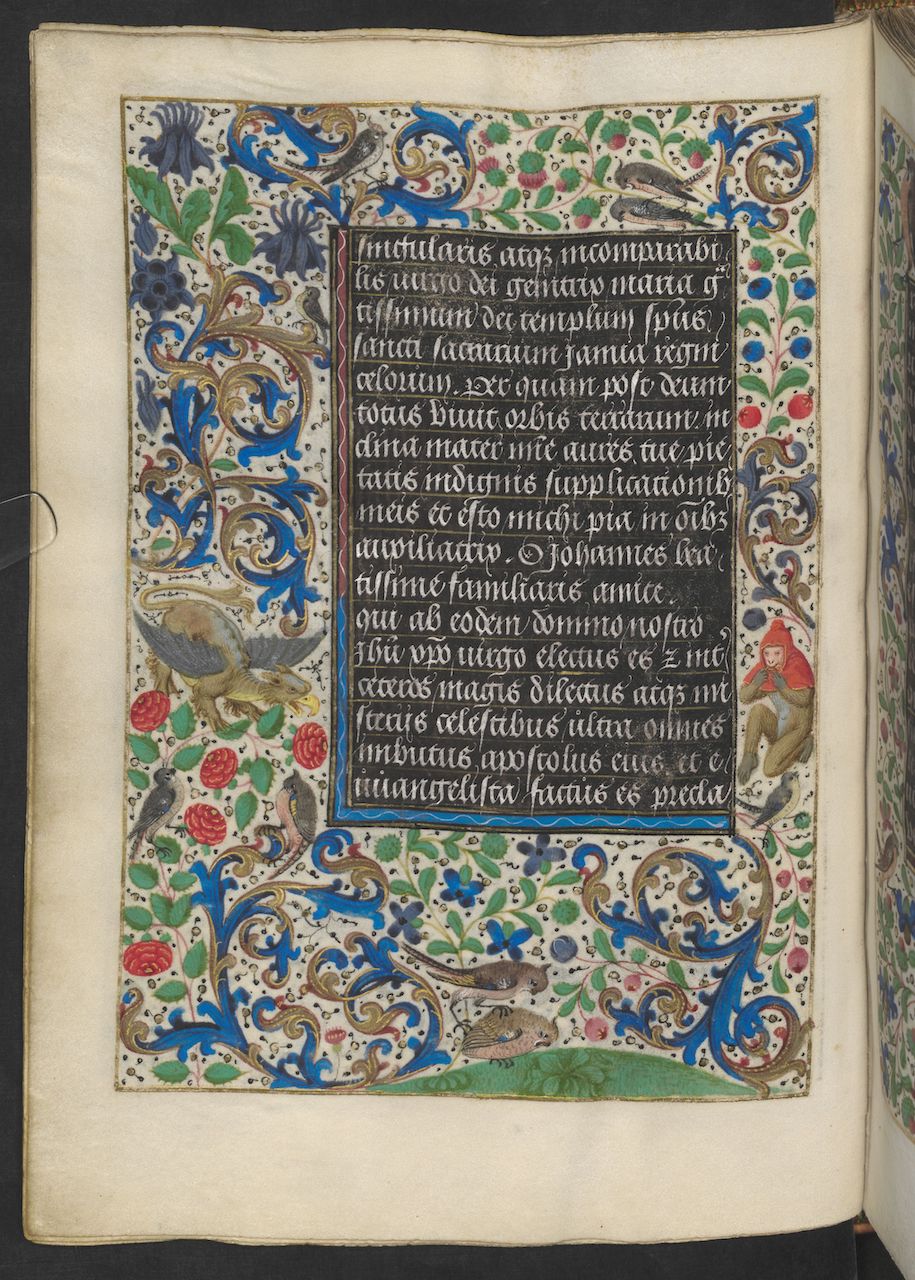 singularis atqz incomparabi
lis uirgo dei genitrix maria g̃
tissimum dei templum sp̃us
sancti sacrarium Janua regni
celorum. Per quam post deum
totus viuit orbis terrarum in
clina mater mīe aures tue pie
tatis indignis supplicationib
meis et esto michi pia in oĩbz
auxiliatrix. O Johannes bea
tissime familiaris amice
qui ab eodem domino nostro
Jhũ xp̃o uirgo electus es z int̾
ceteros magis dilectus atqz mi
sterijs celestibus ultra omnes
imbutus apostolus eius et e
uuangelista factus es precla